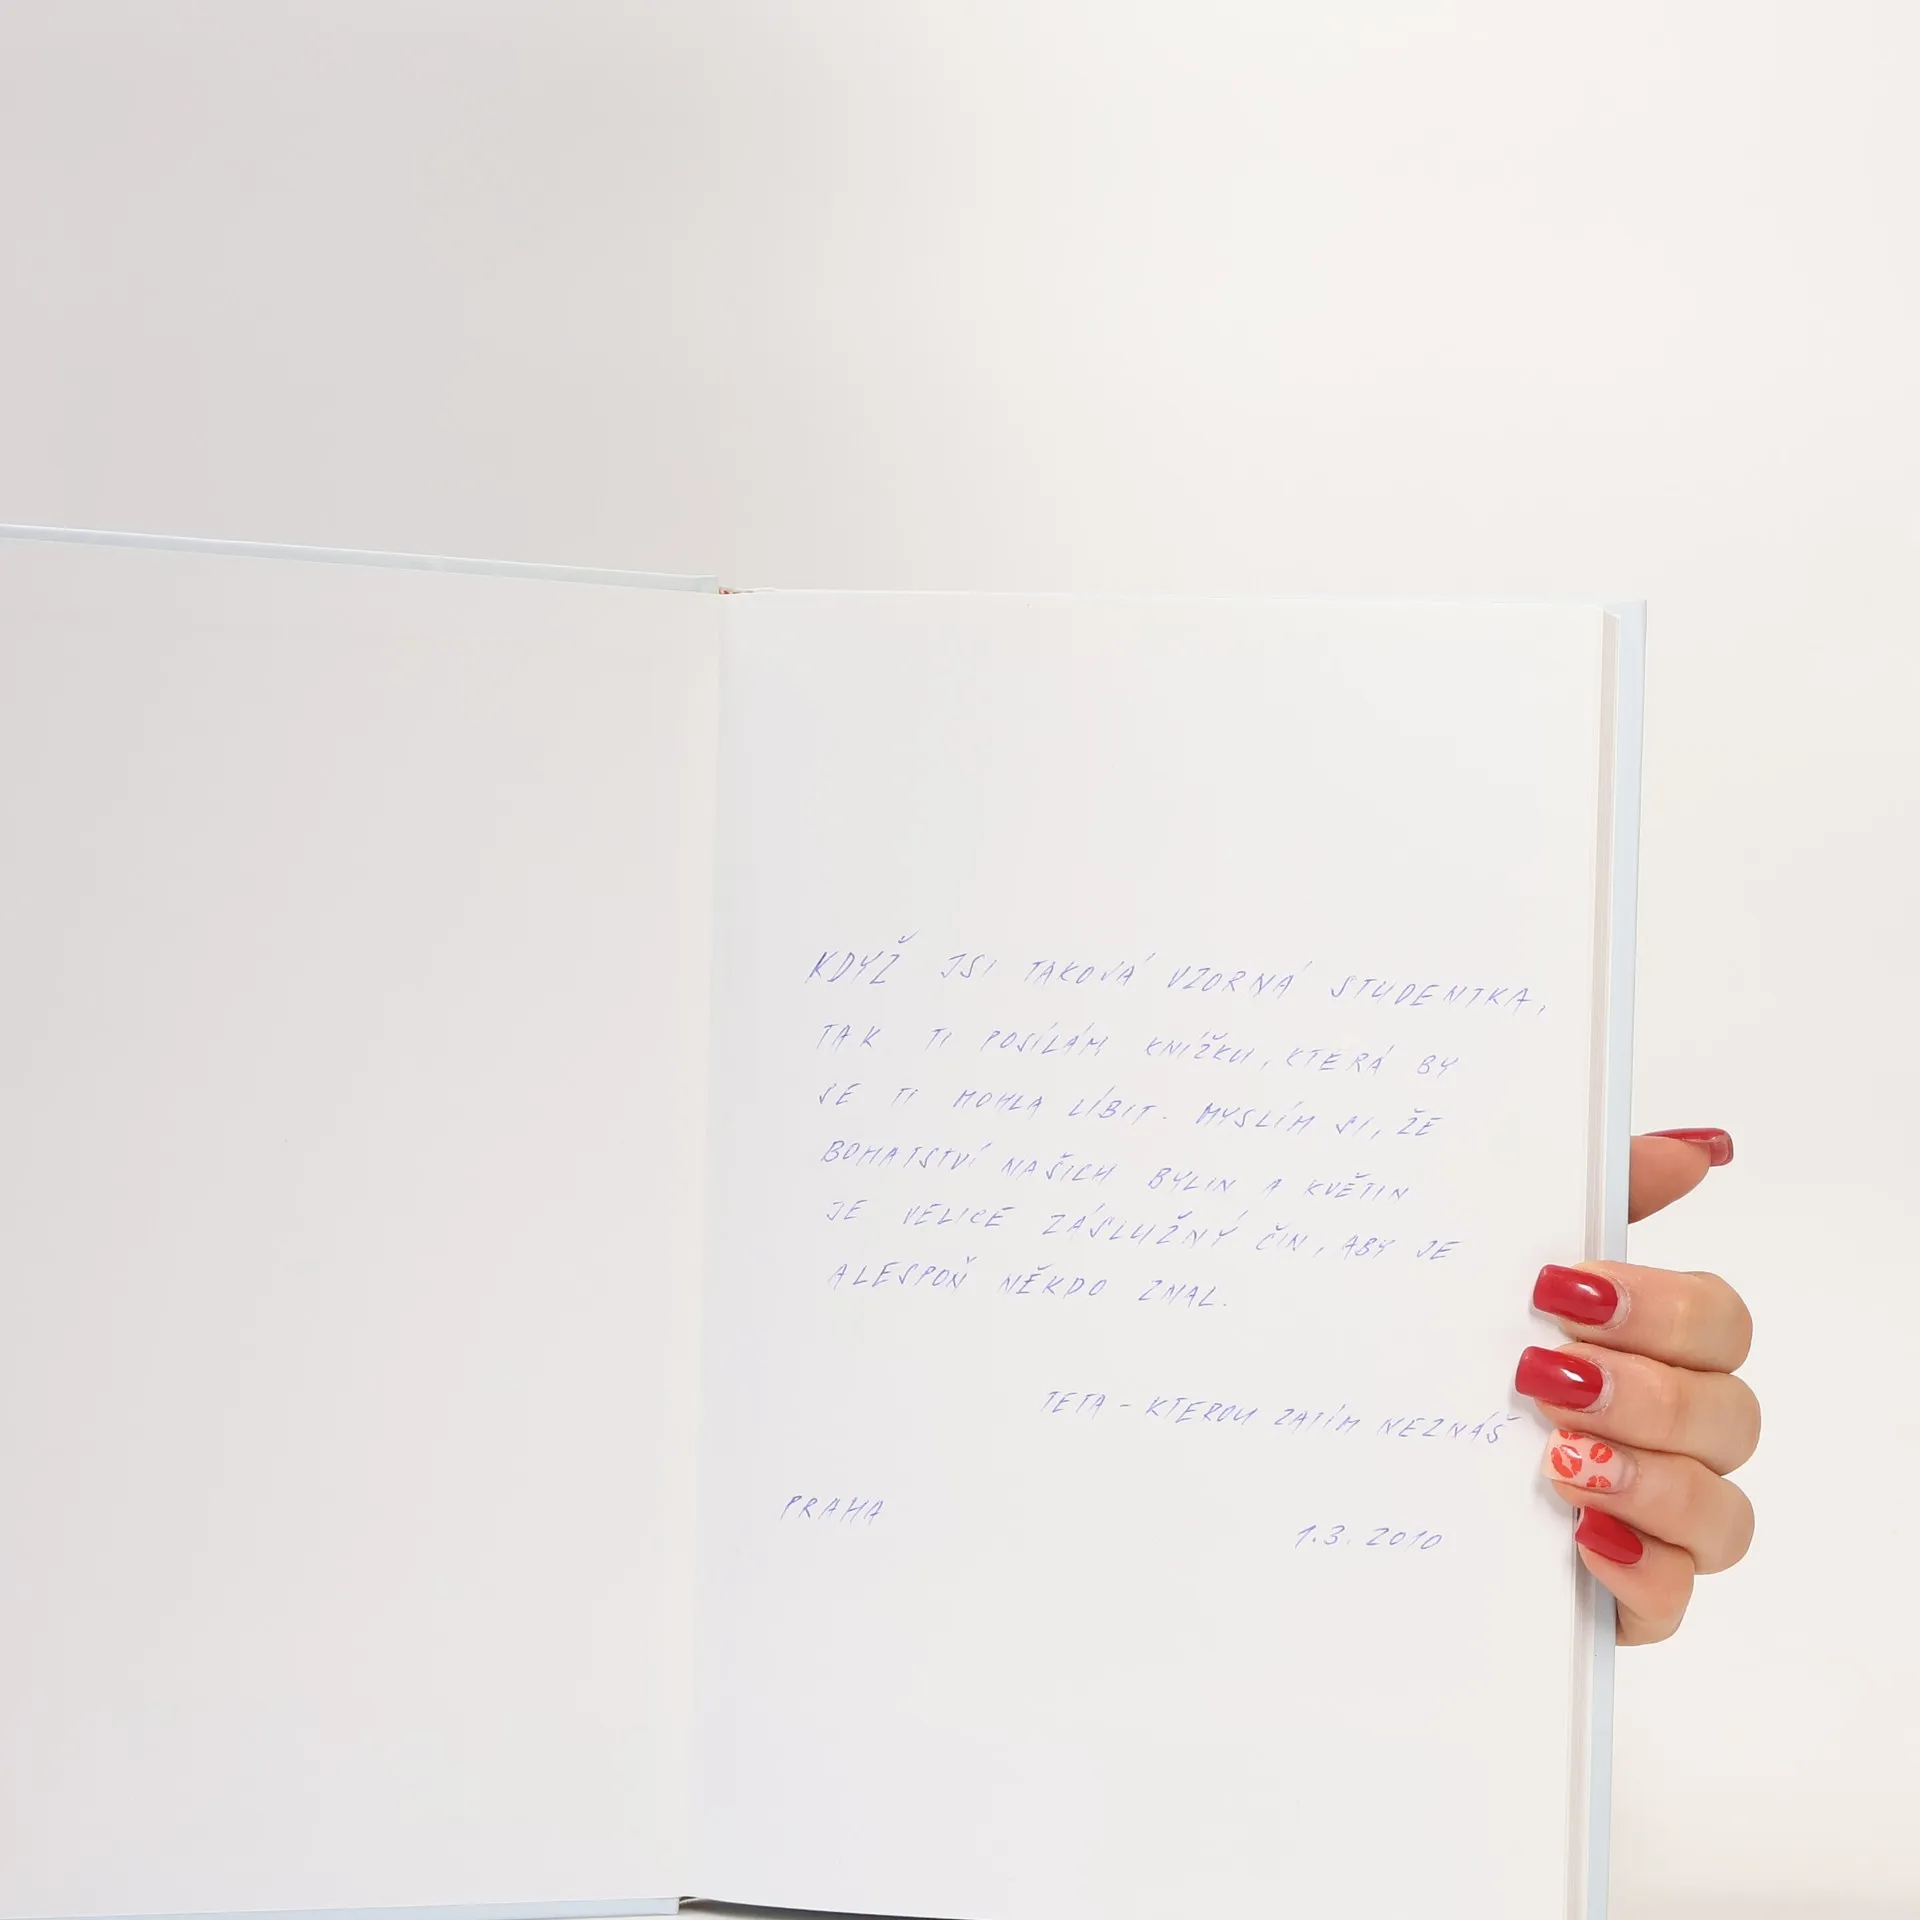 KDYŽ JSI TAKOVÁ VZORNÁ STUDENTKA,
TAK TI POSÍLÁM KNÍŽKU, KTERÁ BY
SE TI MOHLA LÍBIT. MYSLÍM SI, ŽE
BOHATSTVÍ NAŠICH BYLIN A KVĚTIN
JE VELICE ZÁSLUŽNÝ ČIN, ABY JE
ALESPOŇ NĚKDO ZNAL.
TETA - KTEROU ZATÍM NEZNÁŠ
PRAHA
1.3. 2010